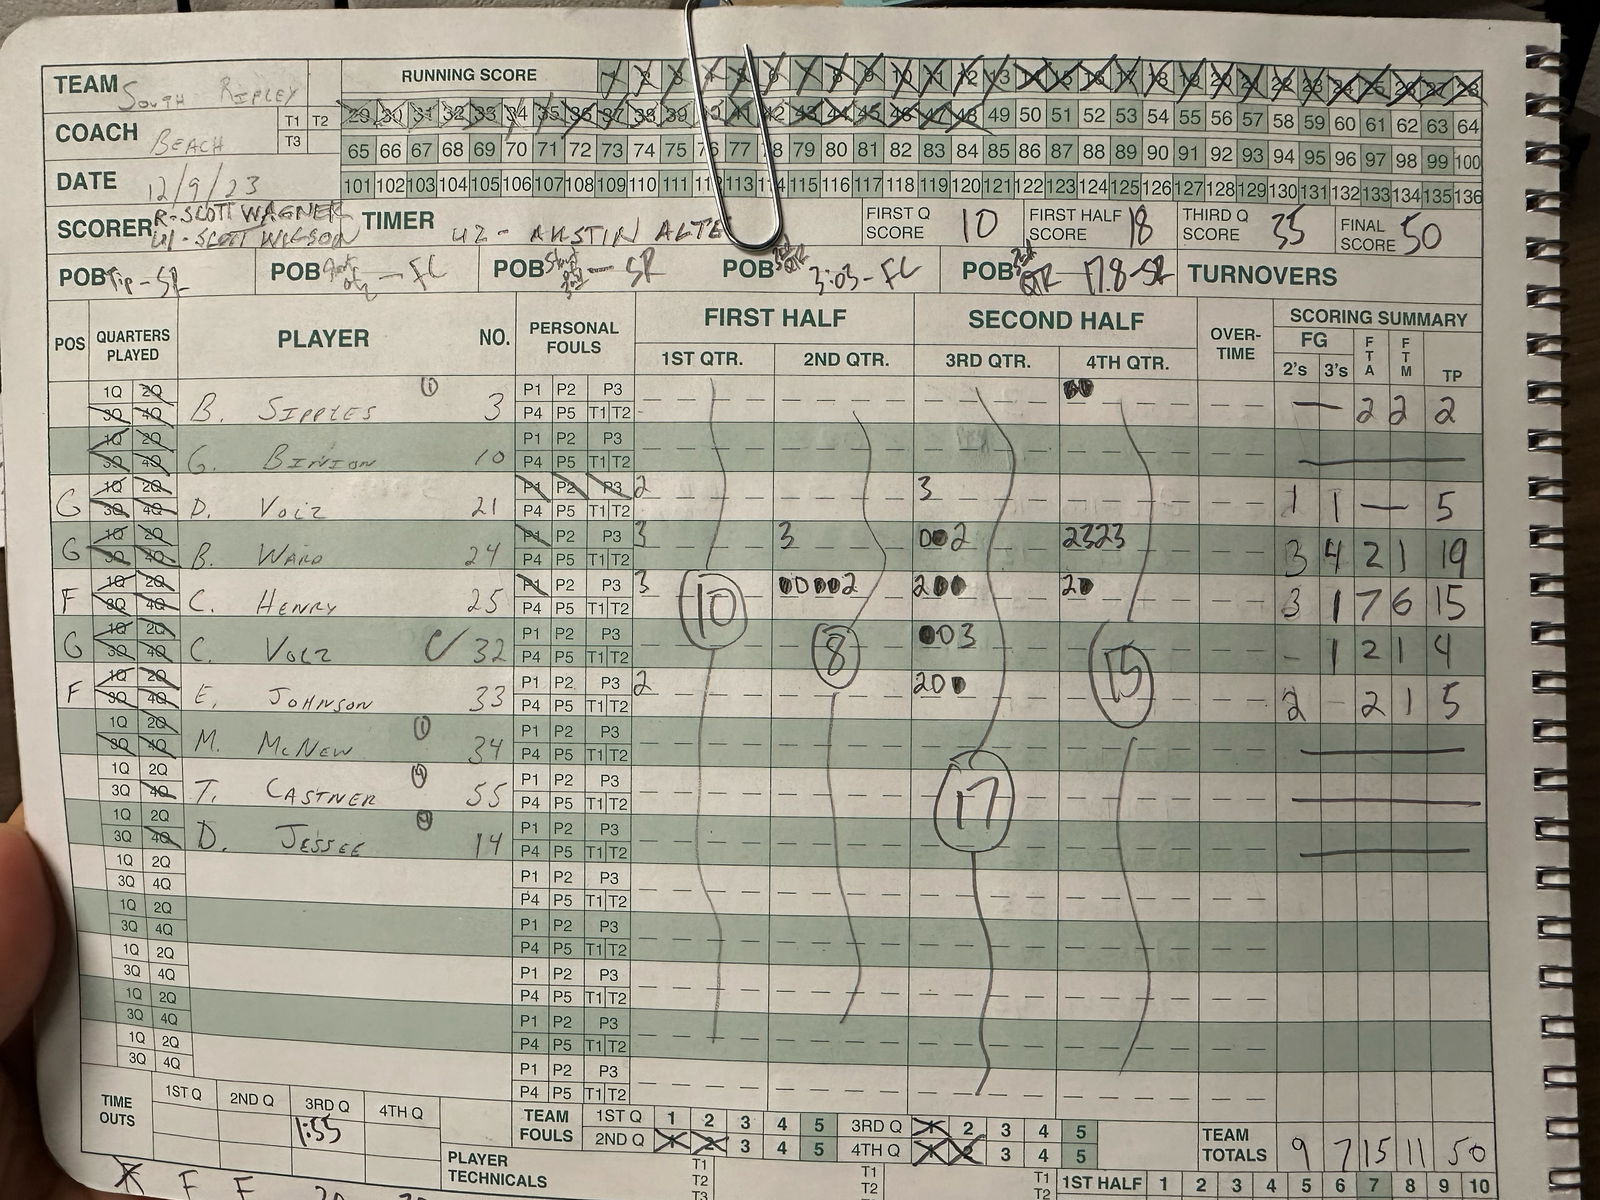 TEAM South Ripley RUNNING SCORE 1 2 3 4 5 6 7 8 9 10 11 12 13 14 15 16 17 18 19 20 21 22 23 24 25 26 27 28
29 30 31 32 33 34 35 36 37 38 39 40 41 42 43 44 45 46 47 48 49 50 51 52 53 54 55 56 57 58 59 60 61 62 63 64
COACH BEACH T1 T2 T3
65 66 67 68 69 70 71 72 73 74 75 76 77 78 79 80 81 82 83 84 85 86 87 88 89 90 91 92 93 94 95 96 97 98 99 100
DATE 12/9/23
101 102 103 104 105 106 107 108 109 110 111 112 113 114 115 116 117 118 119 120 121 122 123 124 125 126 127 128 129 130 131 132 133 134 135 136
SCORER R-SCOTT WAGNER
U1-SCOTT WILSON
TIMER U2- AUSTIN ALTE
FIRST Q SCORE 10 FIRST HALF SCORE 18 THIRD Q SCORE 35 FINAL SCORE 50
POB Tip-SR POB — FC POB — SR POB 3rd QTR 3:03-FC POB 3rd QTR 17.8-SR TURNOVERS
POS QUARTERS PLAYED PLAYER NO. PERSONAL FOULS FIRST HALF SECOND HALF OVER-TIME SCORING SUMMARY
1ST QTR. 2ND QTR. 3RD QTR. 4TH QTR. FG 2's 3's FTA FTM TP
1Q 2Q ① P1 P2 P3 00
3Q 4Q B. SIPPLES 3 P4 P5 T1 T2 — 2 2 2
1Q 2Q P1 P2 P3
3Q 4Q G. BINION 10 P4 P5 T1 T2
1Q 2Q P1 P2 P3 2 3
G 3Q 4Q D. VOLZ 21 P4 P5 T1 T2 1 1 — 5
1Q 2Q P1 P2 P3 3 3 002 2323
G 3Q 4Q B. WARD 24 P4 P5 T1 T2 3 4 2 1 19
1Q 2Q P1 P2 P3 3 00002 200 20
F 3Q 4Q C. HENRY 25 P4 P5 T1 T2 3 1 7 6 15
1Q 2Q P1 P2 P3 003
G 3Q 4Q C. VOLZ C 32 P4 P5 T1 T2 - 1 2 1 4
1Q 2Q P1 P2 P3 2 200
F 3Q 4Q E. JOHNSON 33 P4 P5 T1 T2 2 - 2 1 5
1Q 2Q ① P1 P2 P3
3Q 4Q M. MCNEW 34 P4 P5 T1 T2
1Q 2Q ④ P1 P2 P3
3Q 4Q T. CASTNER 55 P4 P5 T1 T2
1Q 2Q ④ P1 P2 P3
3Q 4Q D. JESSEE 14 P4 P5 T1 T2
10 8 17 15
1Q 2Q P1 P2 P3
3Q 4Q P4 P5 T1 T2
1Q 2Q P1 P2 P3
3Q 4Q P4 P5 T1 T2
1Q 2Q P1 P2 P3
3Q 4Q P4 P5 T1 T2
1Q 2Q P1 P2 P3
3Q 4Q P4 P5 T1 T2
1Q 2Q P1 P2 P3
3Q 4Q P4 P5 T1 T2
TIME OUTS 1ST Q 2ND Q 3RD Q 4TH Q
1:55
TEAM FOULS 1ST Q 1 2 3 4 5 3RD Q 1 2 3 4 5
2ND Q 1 2 3 4 5 4TH Q 1 2 3 4 5
TEAM TOTALS 9 7 15 11 50
PLAYER TECHNICALS T1 T2 T3 T1 T2 T1 T2
1ST HALF 1 2 3 4 5 6 7 8 9 10
F F